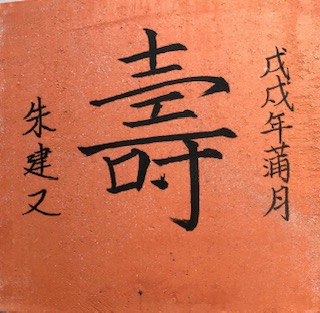 戊戌年蒲月
壽
朱建又